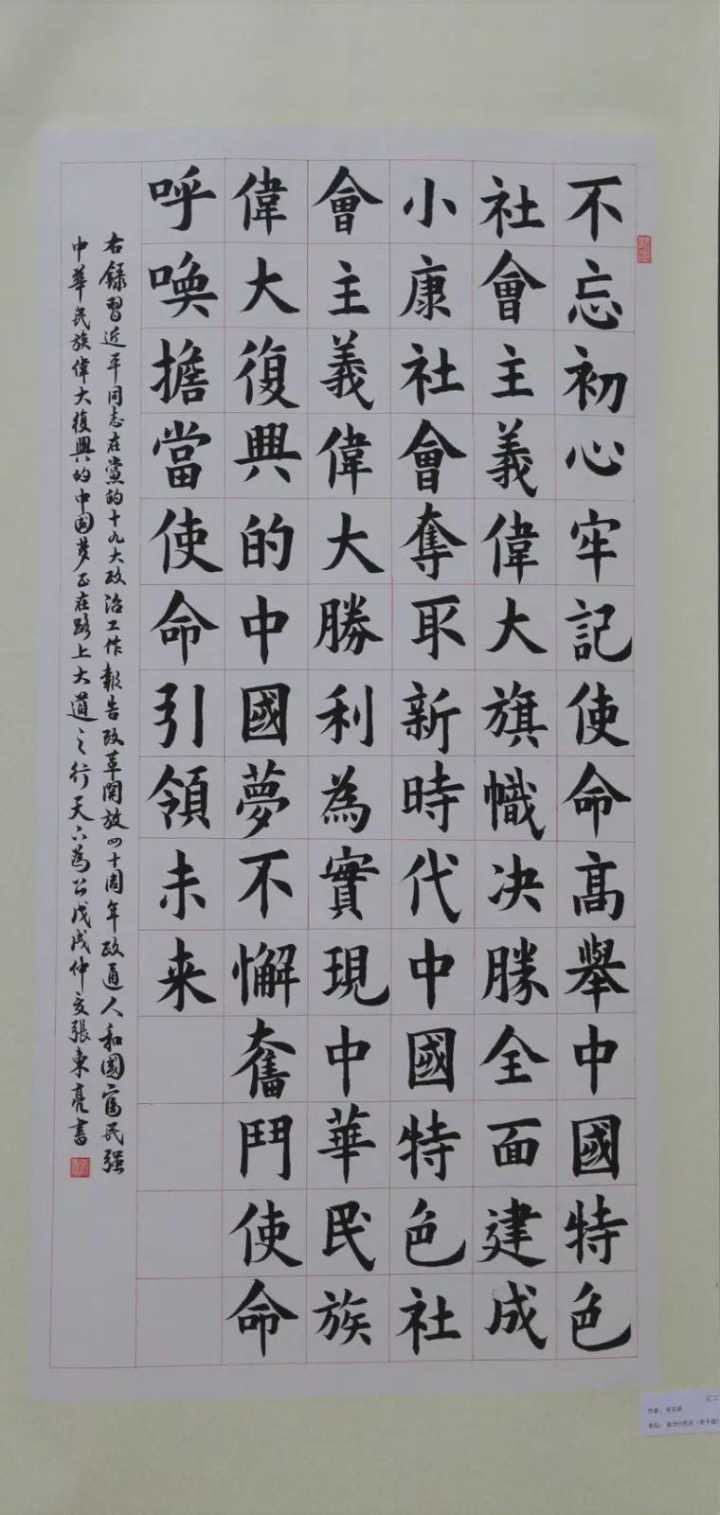 不忘初心牢記使命高舉中國特色
社會主義偉大旗幟决勝全面建成
小康社會奪取新時代中國特色社
會主義偉大勝利為實現中華民族
偉大復興的中國夢不懈奮鬥使命
呼喚擔當使命引領未来
右錄習近平同志在黨的十九大政治工作報告改革開放四十周年政通人和國富民强
中華民族偉大復興的中國夢正在路上大道之行天下為公戊戌仲夏張東亮書